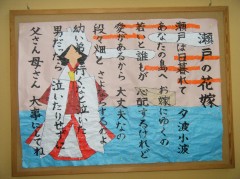 瀬戸の花嫁
瀬戸は日暮れて 夕波小波
あなたの島へ お嫁にゆくの
若いと誰もが 心配するけれど
愛があるから 大丈夫なの
段々畑と さよならするのよ
幼い弟 行くなと泣いた
男だったら 泣いたりせずに
父さん母さん 大事にしてね